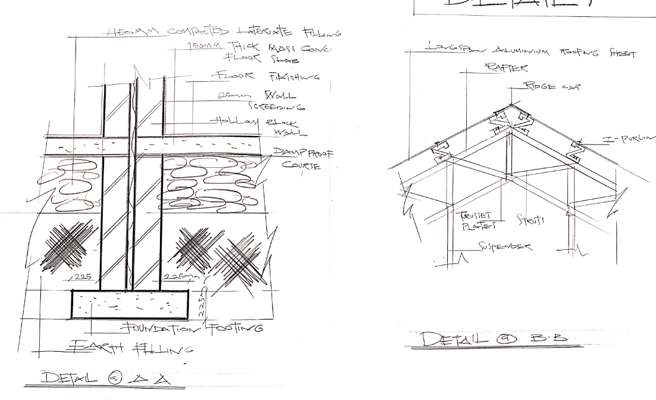 450MM COMPACTED LATERIATE FILLING
150MM THICK MASS CONC.
FLOOR SLAB
FLOOR FINISHING
25mm WALL
SCREEDING
HOLLOW BLOCK
WALL
DAMPPROOF
COURSE
225
225mm
225mm
FOUNDATION FOOTING
EARTH FILLING
DETAIL @ A A
DETAIL
LONGSPAN ALUMINIUM ROOFING SHEET
RAFTER
RIDGE CAP
Z-PURLIN
GUSSET
PLATES
STRUTS
SUSPENDER
DETAIL @ B.B